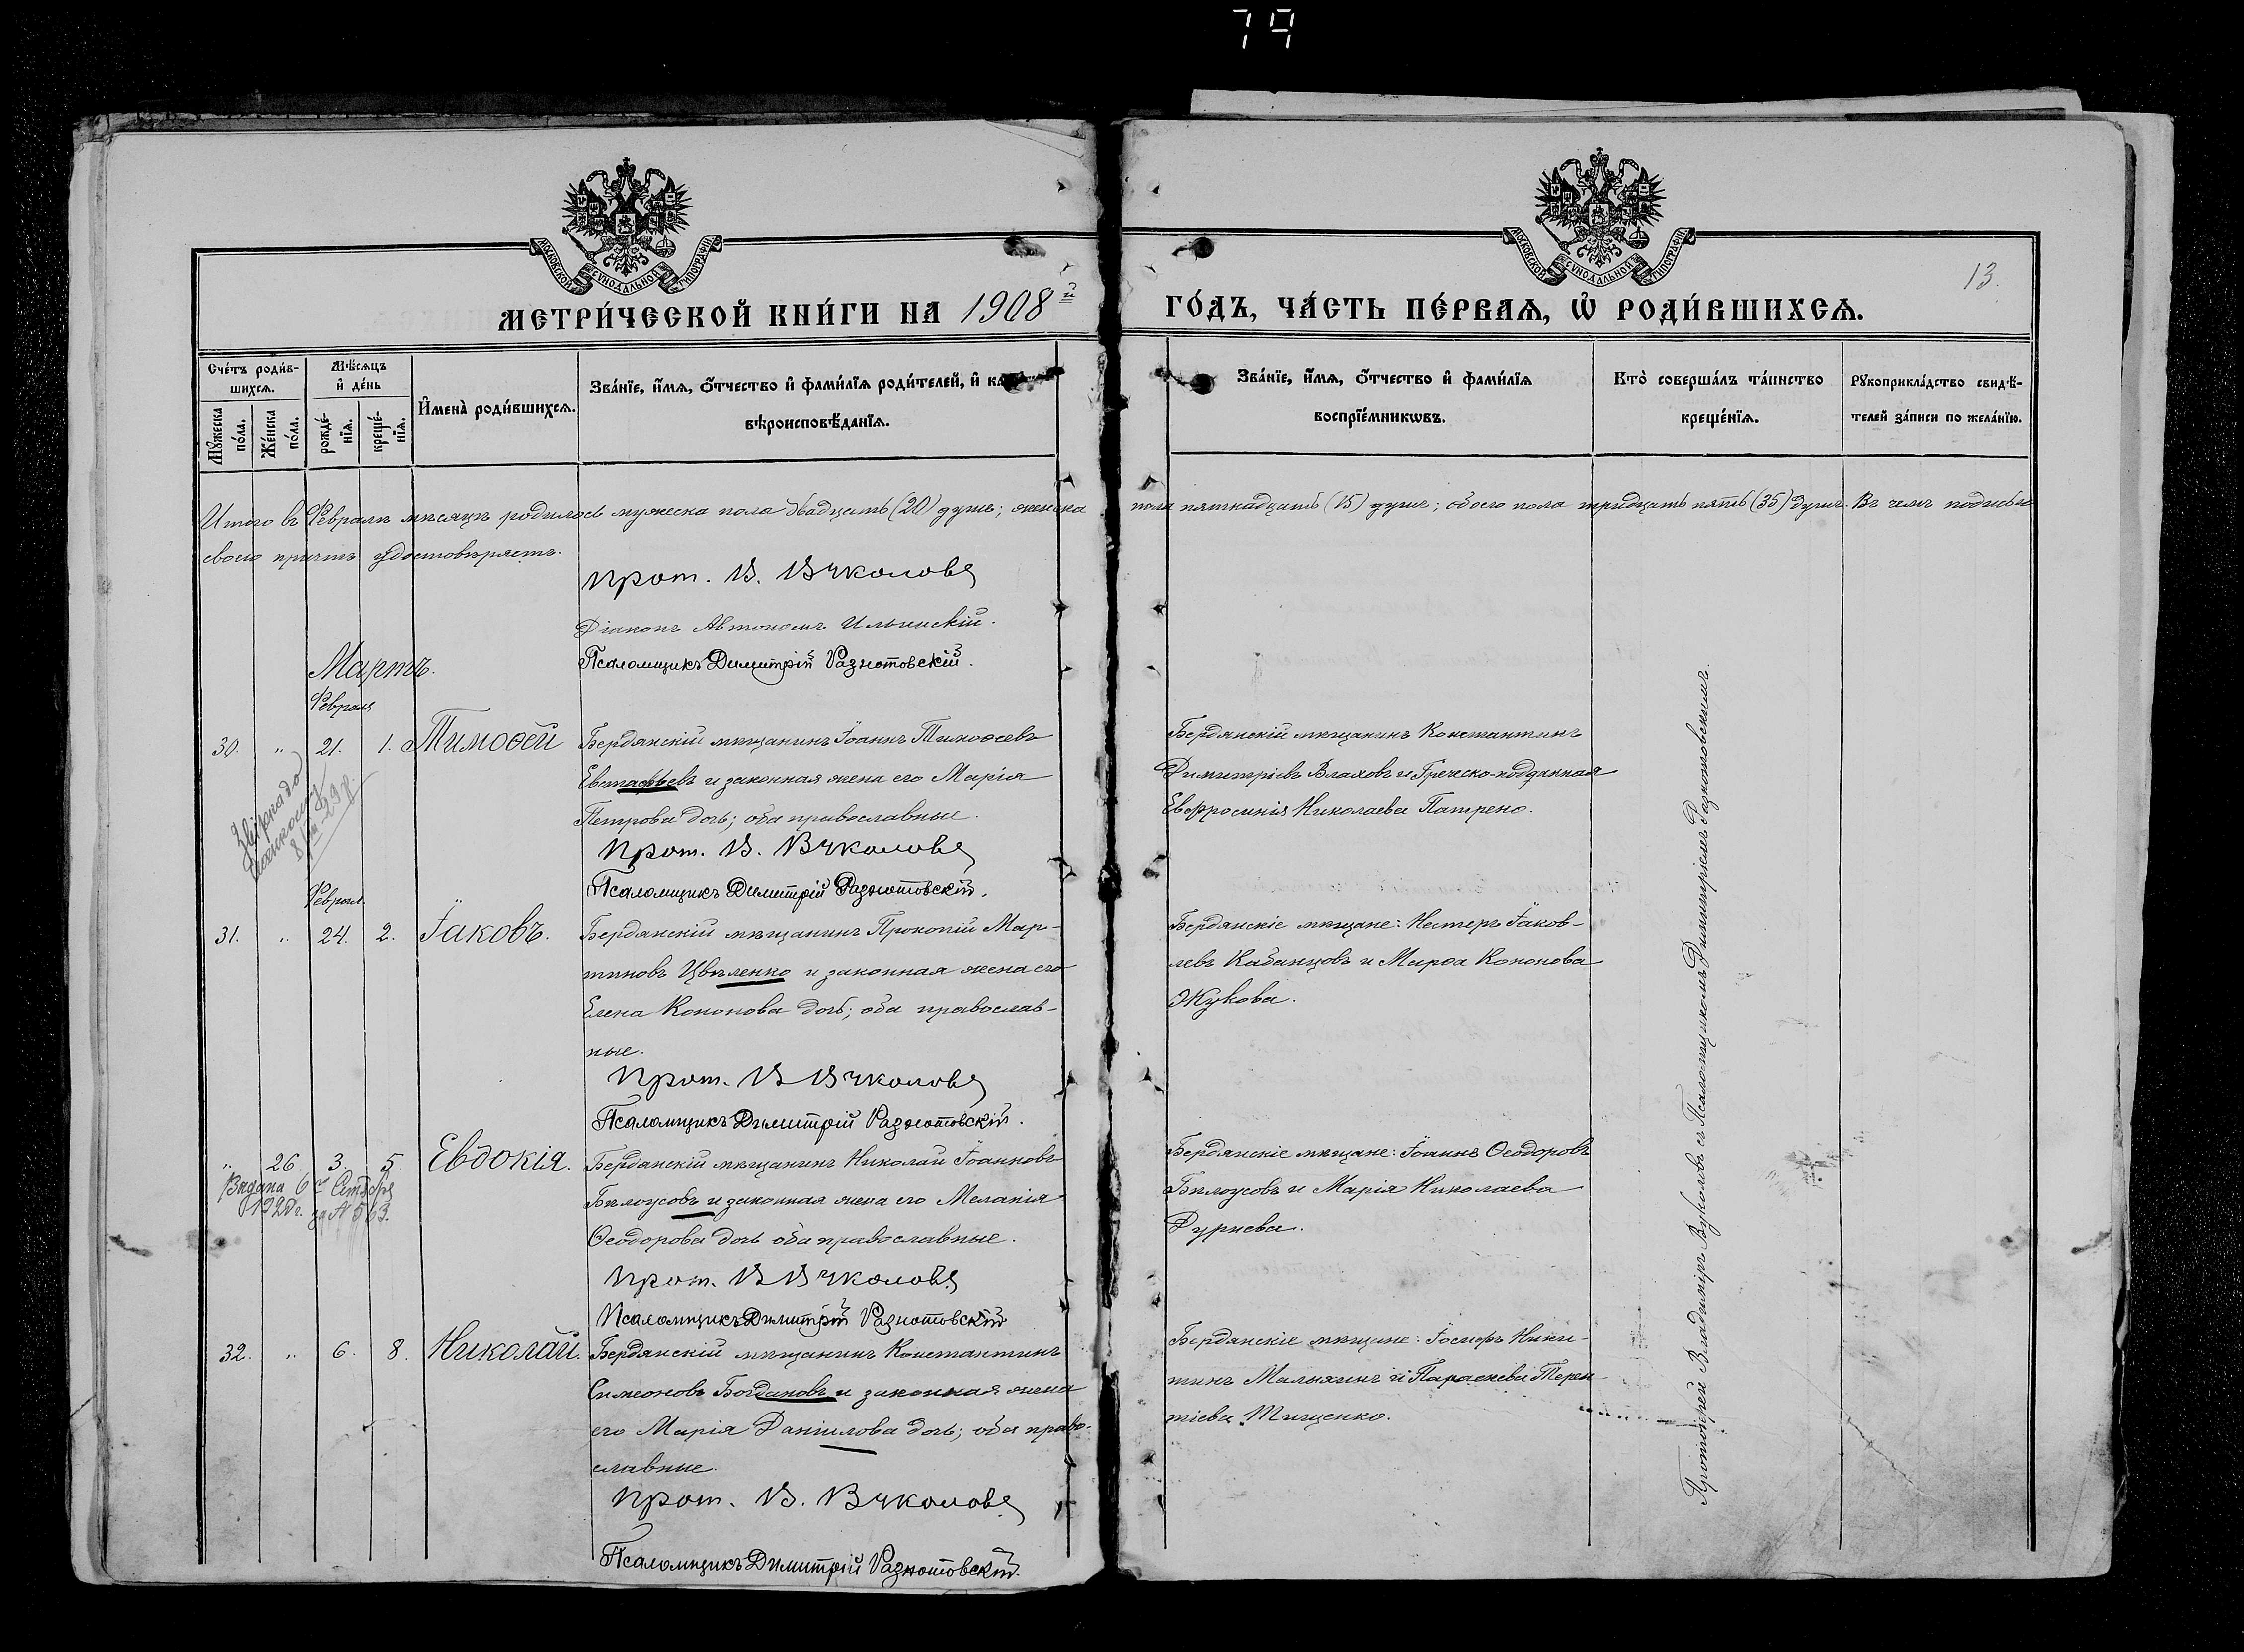 79
МОСКОВСКОЙ СѴНОДАЛЬНОЙ ТИПОГРАФІИ
МОСКОВСКОЙ СѴНОДАЛЬНОЙ ТИПОГРАФІИ
13.
МЕТРИ́ЧЕСКОЙ КНИ́ГИ НА 1908й
ГО́ДЪ, ЧА́СТЬ ПЕ́РВАѦ, Ѡ҆ РОДИ́ВШИХСѦ.
Сче́тъ роди́вшихсѧ.
Мꙋ́жеска по́ла.
Же́нска по́ла.
Мѣ́сѧцъ и҆ де́нь
рожде́нїѧ.
креще́нїѧ.
И҆мена̀ роди́вшихсѧ.
Зва́нїе, и҆́мѧ, ѻ҆́тчество и҆ фами́лїѧ роди́телей, и҆
вѣроисповѣ́данїѧ.
Зва́нїе, и҆́мѧ, ѻ҆́тчество и҆ фами́лїѧ
воспрїе́мникѡвъ.
Кто̀ соверша́лъ та́инство
креще́нїѧ.
Рꙋкоприкла́дство свидѣ́-
телей за́писи по жела́нїю.
Итого въ Февралѣ мѣсяцѣ родилось мужеска пола двадцать (20) душъ; женска пола пятнадцать (15) душъ; обоего пола тридцать пять (35) душъ. Въ чемъ подписью
своею причтъ удостовѣряетъ.
Прот. В. Вуколовъ
Діаконъ Автономъ Ильинскій.
Псаломщикъ Димитрій Разнотовскій.
Мартъ.
Февраля
30. " 21. 1. Тимоѳей
Бердянскій мѣщанинъ Іоаннъ Тимоѳеевъ
Евстафьевъ и законная жена его Марія
Петрова дочь; оба православные.
Прот. В. Вуколовъ
Псаломщикъ Димитрій Разнотовскій.
Бердянскій мѣщанинъ Константинъ
Димитріевъ Влаховъ и Греческо-подданная
Евфросинія Николаева Патрено.
Феврал.
31. " 24. 2. Іаковъ.
Бердянскій мѣщанинъ Прокопій Мар-
тиновъ Цвѣленко и законная жена его
Елена Кононова дочь; оба православ-
ные.
Прот. В Вуколовъ
Псаломщикъ Димитрій Разнотовскій.
Бердянскіе мѣщане: Нестеръ Іаков-
левъ Кабанцовъ и Марѳа Кононова
Жукова.
" 26 3. 5. Евдокія.
Выдана 6го
192 г. за № 563.
Бердянскій мѣщанинъ Николай Іоанновъ
Бѣлоусовъ и законная жена его Меланія
Ѳеодорова дочь оба православные.
Прот. В Вуколовъ
Псаломщикъ Димитрій Разнотовскій
Бердянскіе мѣщане: Іоаннъ Ѳеодоровъ
Бѣлоусовъ и Марія Николаева
Дурнева.
32. " 6. 8. Николай.
Бердянскій мѣщанинъ Константинъ
Симеоновъ Богдановъ и законная жена
его Марія Даніилова дочь; оба право-
славные.
Прот. В. Вуколовъ
Псаломщикъ Димитрій Разнотовскій.
Бердянскіе мѣщане: Іосифъ Ники-
тинъ Малыхинъ и Параскева Терен-
тіева Тищенко.
Протоіерей Владиміръ Вуколовъ съ Псаломщикомъ Димитріемъ Разнотовскимъ.